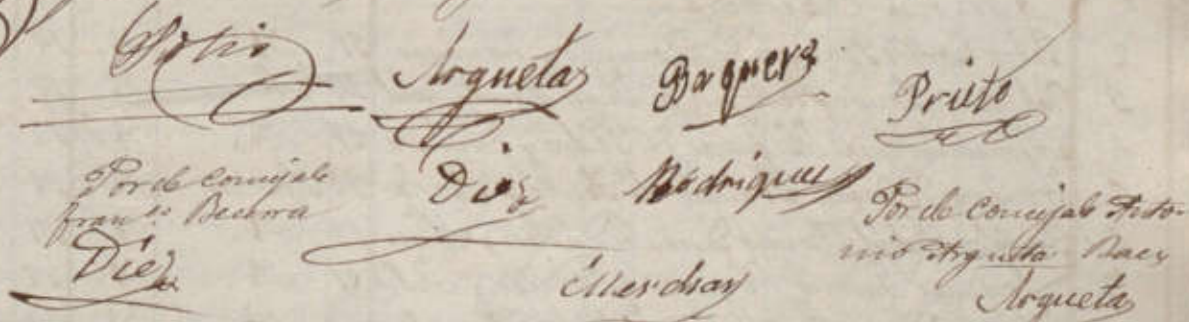 Argueta Baquero Prieto
Por el Concejal
Fran.co Becerra
Diez
Diez
Rodriguez
Por el Concejal Anto-
nio Argueta Baez
Argueta